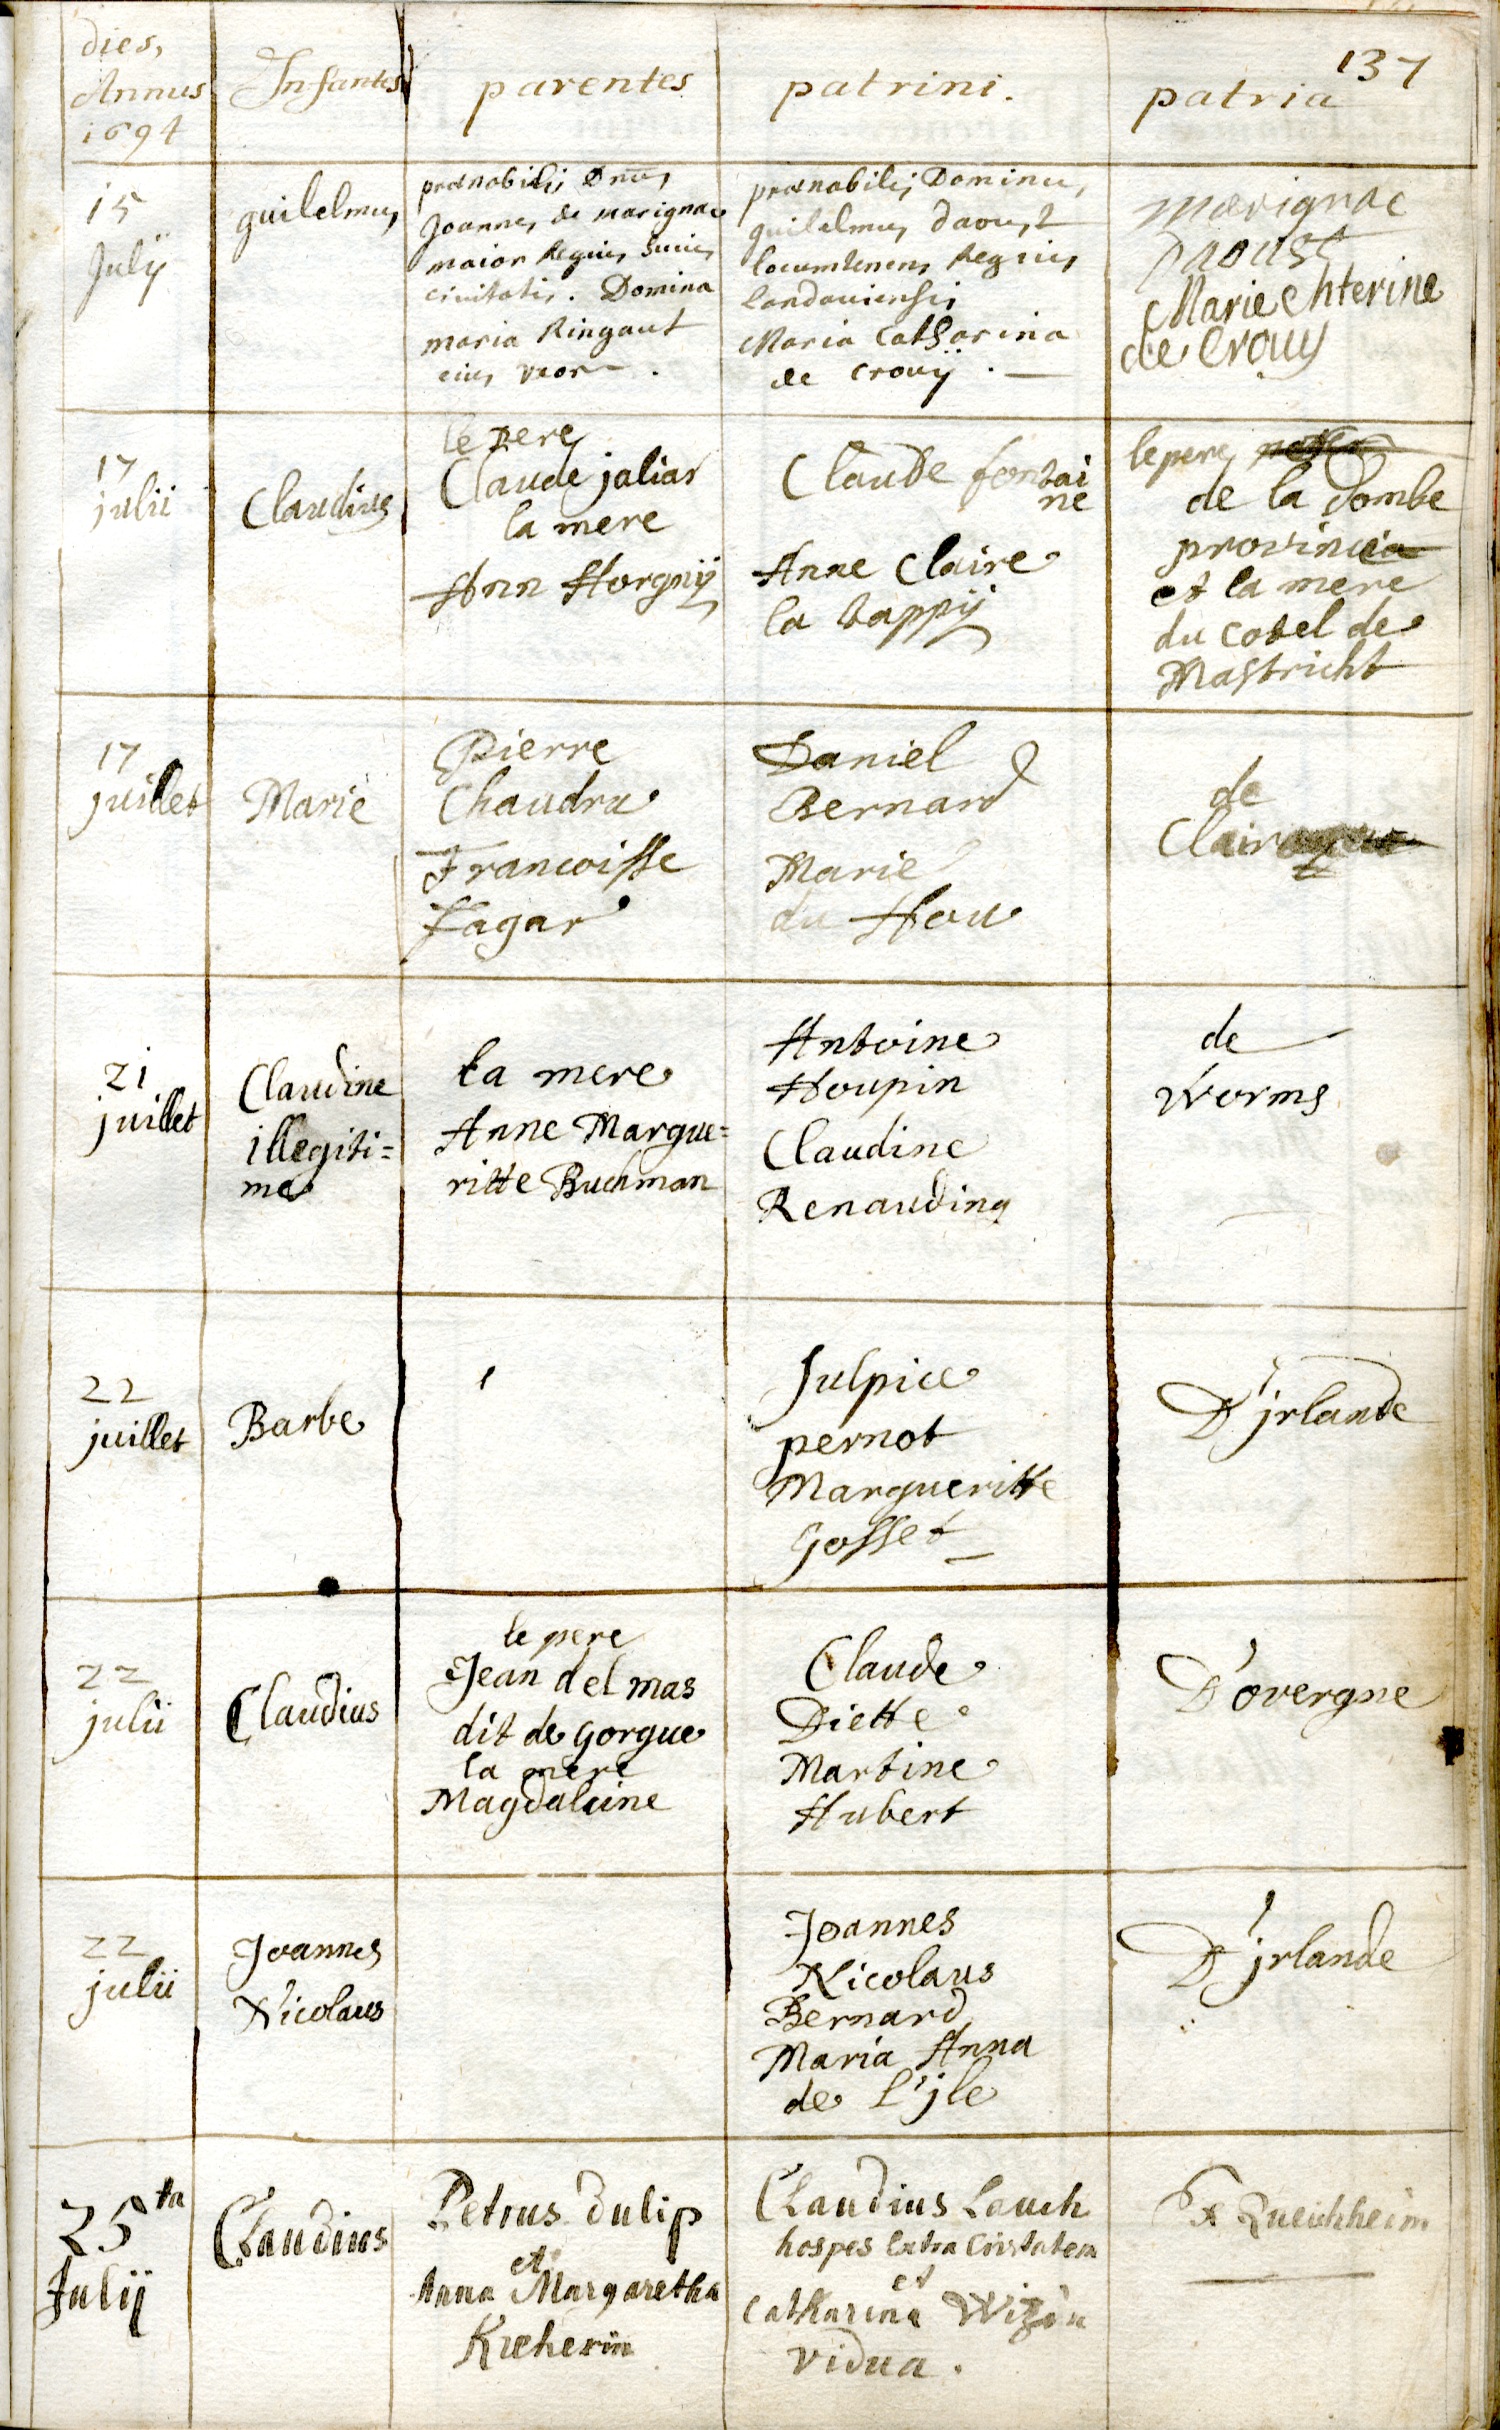 137
dies,
Annus
1694
Infantes
parentes
patrini.
patria
15
Julÿ
guilelmus
prænobilis Dnus
Joannes de marignac
maior Regius huius
civitatis. Domina
maria Ringaut
eius vxor.
prænobilis Dominus
guilelmus daoust
locumtenens Regius
landaviensis
Maria Catharina
de crouÿ.
marignac
daoust
Marie Chterine
de Crouy
17
julii
Claudius
le pere
Claude jalias
la mere
Ann Horgnÿ
Claude fontai
ne
Anne Claire
la happÿ
le pere
de la Dombe
provincia
et la mere
du costel de
Mastricht
17
juillet
Marie
Pierre
Chaudru
Francoisse
Fagar
Daniel
Bernard
Marie
du Hou
de
21
juillet
Claudine
illegiti=
me
la mere
Anne Margue=
ritte Buchman
Antoine
Houpin
Claudine
Renaudina
de
Worms
22
juillet
Barbe
Sulpice
pernot
Margueritte
Gosset
D'jrlande
22
julii
Claudius
le pere
Jean del mas
dit de gorgue
la mere
Magdaleine
Claude
Diette
Martine
Hubert
D'overgne
22
julii
Joannes
Nicolaus
Joannes
Nicolaus
Bernard
Maria Anna
de L'jle
D'jrlande
25ta
Julÿ
Claudius
Petrus dulip
et
Anna Margaretha
Kieherin
Claudius Lauch
hospes Extra Civitatem
et
Catharina Wizin
vidua.
Ex Queichheim